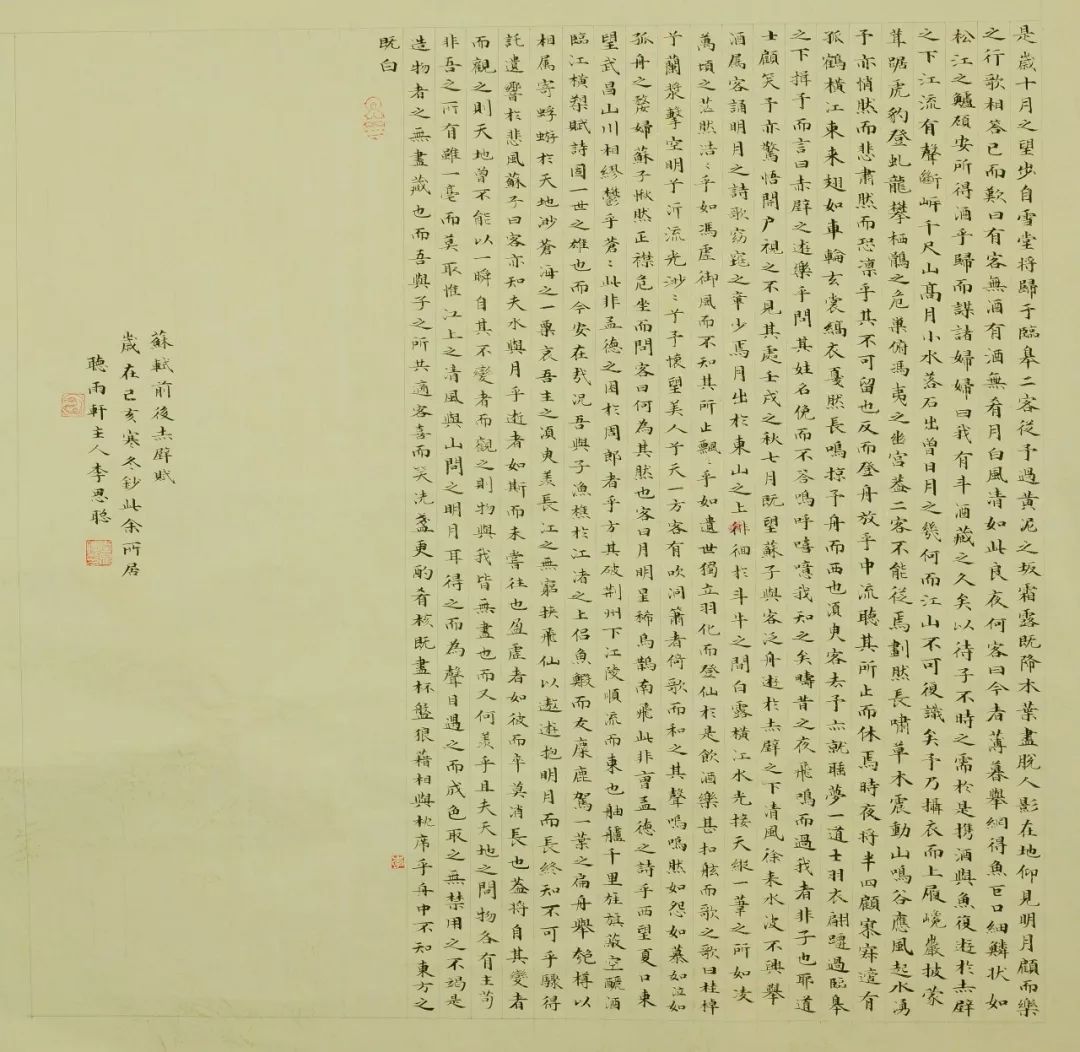 是歲十月之望步自雪堂將歸于臨皋二客從予過黃泥之坂霜露既降木葉盡脫人影在地仰見明月顧而樂
之行歌相答已而歎曰有客無酒有酒無肴月白風清如此良夜何客曰今者薄暮舉網得魚巨口細鱗狀如
松江之鱸顧安所得酒乎歸而謀諸婦婦曰我有斗酒藏之久矣以待子不時之需於是攜酒與魚復遊於赤壁
之下江流有聲斷岸千尺山高月小水落石出曾日月之幾何而江山不可復識矣予乃攝衣而上履巉巖披蒙
茸踞虎豹登虬龍攀栖鶻之危巢俯馮夷之幽宮蓋二客不能從焉劃然長嘯草木震動山鳴谷應風起水湧
予亦悄然而悲肅然而恐凛乎其不可留也反而登舟放乎中流聽其所止而休焉時夜將半四顧寂寥適有
孤鶴橫江東來翅如車輪玄裳縞衣戛然長鳴掠予舟而西也須臾客去予亦就睡夢一道士羽衣翩躚過臨皋
之下揖予而言曰赤壁之遊樂乎問其姓名俛而不答嗚呼噫嘻我知之矣疇昔之夜飛鳴而過我者非子也耶道
士顧笑予亦驚悟開戶視之不見其處壬戌之秋七月既望蘇子與客泛舟遊於赤壁之下清風徐來水波不興舉
酒属客誦明月之詩歌窈窕之章少焉月出於東山之上徘徊於斗牛之間白露橫江水光接天縱一葦之所如凌
萬頃之茫然浩：乎如馮虛御風而不知其所止飄：乎如遺世獨立羽化而登仙於是飲酒樂甚扣舷而歌之歌曰桂棹
兮蘭槳擊空明兮泝流光渺：兮予懷望美人兮天一方客有吹洞簫者倚歌而和之其聲嗚嗚然如怨如慕如泣如
孤舟之嫠婦蘇子愀然正襟危坐而問客曰何為其然也客曰月明星稀烏鵲南飛此非曹孟德之詩乎西望夏口東
望武昌山川相繆鬱乎蒼：此非孟德之困於周郎者乎方其破荆州下江陵順流而東也舳艫千里旌旗蔽空釃酒
臨江橫槊賦詩固一世之雄也而今安在哉況吾與子漁樵於江渚之上侣魚鰕而友麋鹿駕一葉之扁舟舉匏樽以
相属寄蜉蝣於天地渺蒼海之一粟哀吾生之須臾羨長江之無窮挾飛仙以遨遊抱明月而長終知不可乎驟得
託遺響於悲風蘇子曰客亦知夫水與月乎逝者如斯而未嘗往也盈虛者如彼而卒莫消長也蓋將自其變者
而觀之則天地曾不能以一瞬自其不變者而觀之則物與我皆無盡也而又何羨乎且夫天地之間物各有主苟
非吾之所有雖一毫而莫取惟江上之清風與山間之明月耳得之而為聲目遇之而成色取之無禁用之不竭是
造物者之無盡藏也而吾與子之所共適客喜而笑洗盞更酌肴核既盡杯盤狼藉相與枕席乎舟中不知東方之
既白
蘇軾前後赤壁賦
歲在己亥寒冬鈔此余所居
聽雨軒主人李思聰